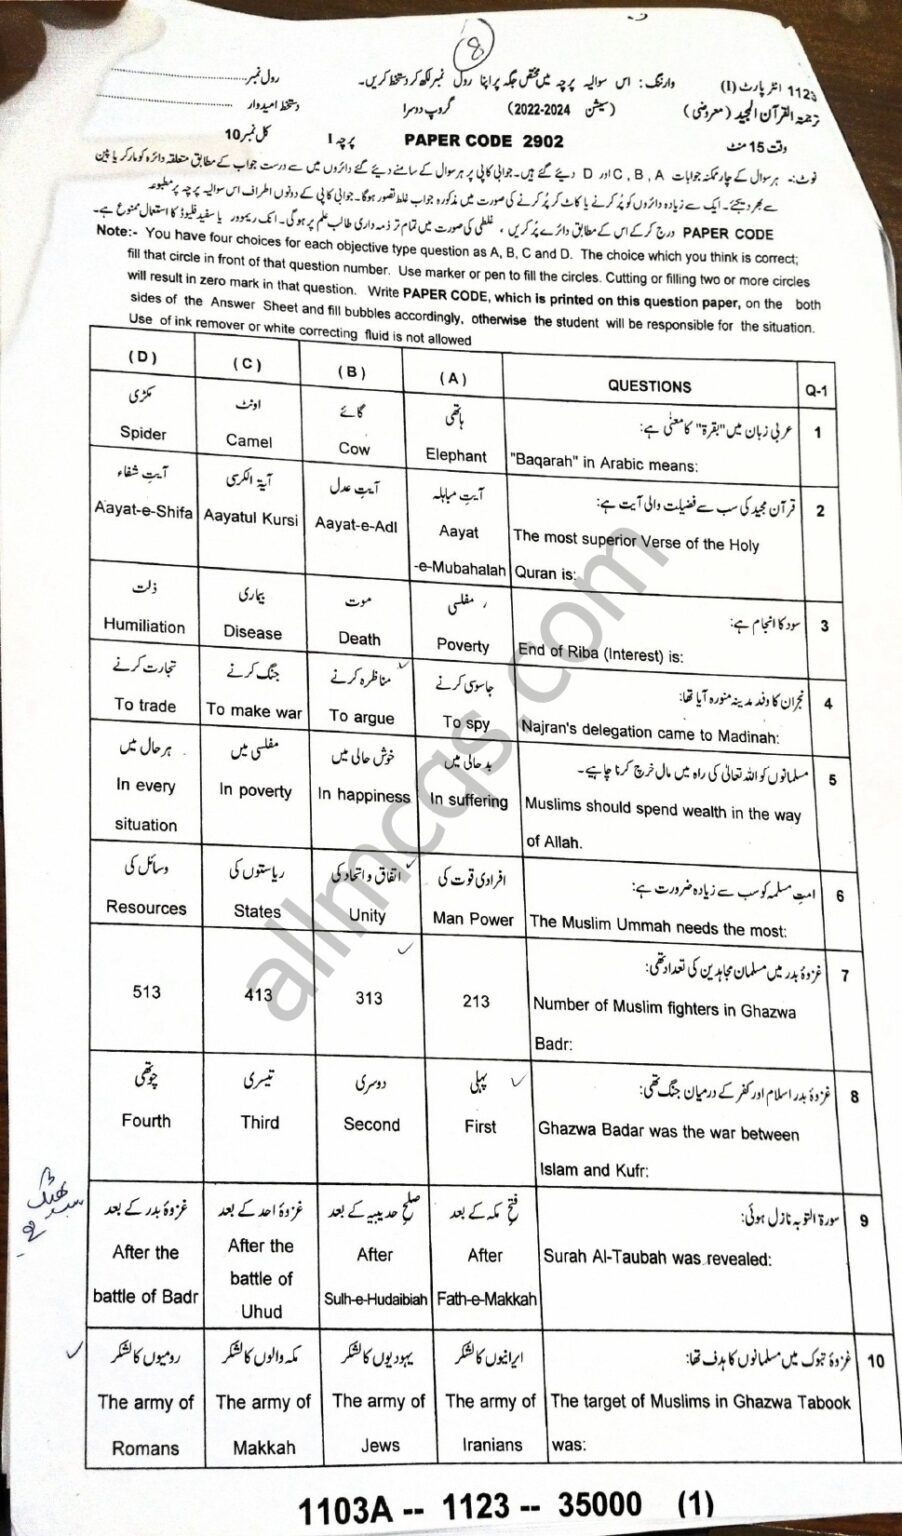 8
1123 انٹر پارٹ (I) وارننگ: اس سوالیہ پرچہ میں مختص جگہ پر اپنا رول نمبر لکھ کر دستخط کریں۔ رول نمبر
ترجمۃ القرآن المجید (معروضی) (سیشن 2022-2024) گروپ دوسرا دستخط امیدوار
وقت 15 منٹ PAPER CODE 2902 پرچہ I کل نمبر 10
نوٹ:- ہر سوال کے چار ممکنہ جوابات A ، B ، C اور D دیئے گئے ہیں۔ جوابی کاپی پر ہر سوال کے سامنے دیئے گئے دائروں میں سے درست جواب کے مطابق متعلقہ دائرہ کو مارکر یا پین
سے بھر دیجئے۔ ایک سے زیادہ دائروں کو پُر کرنے یا کاٹ کر پُر کرنے کی صورت میں مذکورہ جواب غلط تصور ہوگا۔ جوابی کاپی کے دونوں اطراف اس سوالیہ پرچہ پر مطبوعہ
PAPER CODE درج کر کے اس کے مطابق دائرے پُر کریں، غلطی کی صورت میں تمام تر ذمہ داری طالب علم پر ہوگی۔ انک ریموور یا سفید فلیوڈ کا استعمال ممنوع ہے۔
Note:- You have four choices for each objective type question as A, B, C and D. The choice which you think is correct;
fill that circle in front of that question number. Use marker or pen to fill the circles. Cutting or filling two or more circles
will result in zero mark in that question. Write PAPER CODE, which is printed on this question paper, on the both
sides of the Answer Sheet and fill bubbles accordingly, otherwise the student will be responsible for the situation.
Use of ink remover or white correcting fluid is not allowed
(D) (C) (B) (A) QUESTIONS Q-1
مکڑی اونٹ گائے ہاتھی عربی زبان میں "بقرۃ" کا معنٰی ہے: 1
Spider Camel Cow Elephant "Baqarah" in Arabic means:
آیتِ شفاء آیۃ الکرسی آیتِ عدل آیتِ مباہلہ قرآن مجید کی سب سے فضیلت والی آیت ہے: 2
Aayat-e-Shifa Aayatul Kursi Aayat-e-Adl Aayat The most superior Verse of the Holy
-e-Mubahalah Quran is:
ذلت بیماری موت مفلسی سود کا انجام ہے: 3
Humiliation Disease Death Poverty End of Riba (Interest) is:
تجارت کرنے جنگ کرنے مناظرہ کرنے جاسوسی کرنے نجران کا وفد مدینہ منورہ آیا تھا: 4
To trade To make war To argue To spy Najran's delegation came to Madinah:
ہر حال میں مفلسی میں خوش حالی میں بدحالی میں مسلمانوں کو اللہ تعالیٰ کی راہ میں مال خرچ کرنا چاہیے۔ 5
In every In poverty In happiness In suffering Muslims should spend wealth in the way
situation of Allah.
وسائل کی ریاستوں کی اتفاق و اتحاد کی افرادی قوت کی امتِ مسلمہ کو سب سے زیادہ ضرورت ہے: 6
Resources States Unity Man Power The Muslim Ummah needs the most:
غزوۂ بدر میں مسلمان مجاہدین کی تعداد تھی: 7
513 413 313 213 Number of Muslim fighters in Ghazwa
Badr:
چوتھی تیسری دوسری پہلی غزوۂ بدر اسلام اور کفر کے درمیان جنگ تھی: 8
Fourth Third Second First Ghazwa Badar was the war between
Islam and Kufr:
غزوۂ بدر کے بعد غزوۂ احد کے بعد صلح حدیبیہ کے بعد فتح مکہ کے بعد سورۃ التوبہ نازل ہوئی: 9
After the After the After After Surah Al-Taubah was revealed:
battle of Badr battle of Sulh-e-Hudaibiah Fath-e-Makkah
Uhud
رومیوں کا لشکر مکہ والوں کا لشکر یہودیوں کا لشکر ایرانیوں کا لشکر غزوۂ تبوک میں مسلمانوں کا ہدف تھا: 10
The army of The army of The army of The army of The target of Muslims in Ghazwa Tabook
Romans Makkah Jews Iranians was:
1103A -- 1123 -- 35000 (1)
allmcqs.com